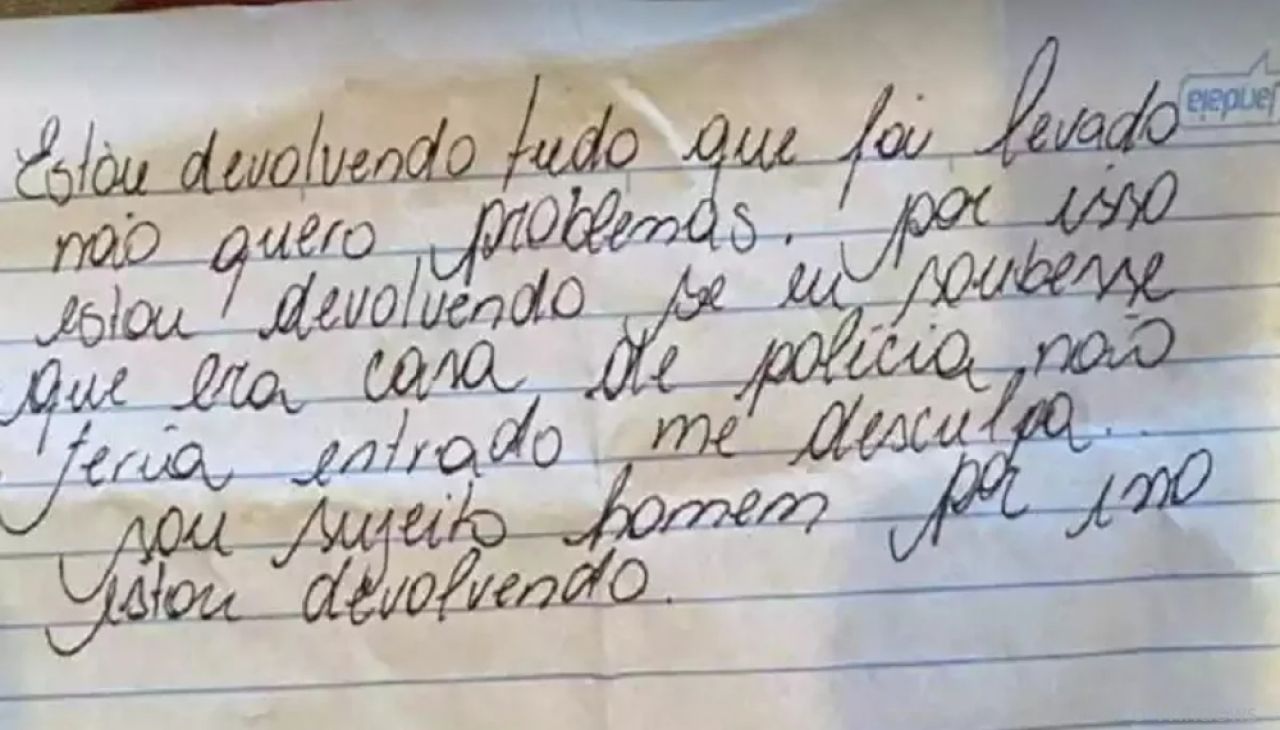 Estou devolvendo tudo que foi levado
não quero problemas. por isso
estou devolvendo, se eu soubesse
que era casa de policia não
teria entrado me desculpa.
sou sujeito homem por isso
estou devolvendo.
jandaia